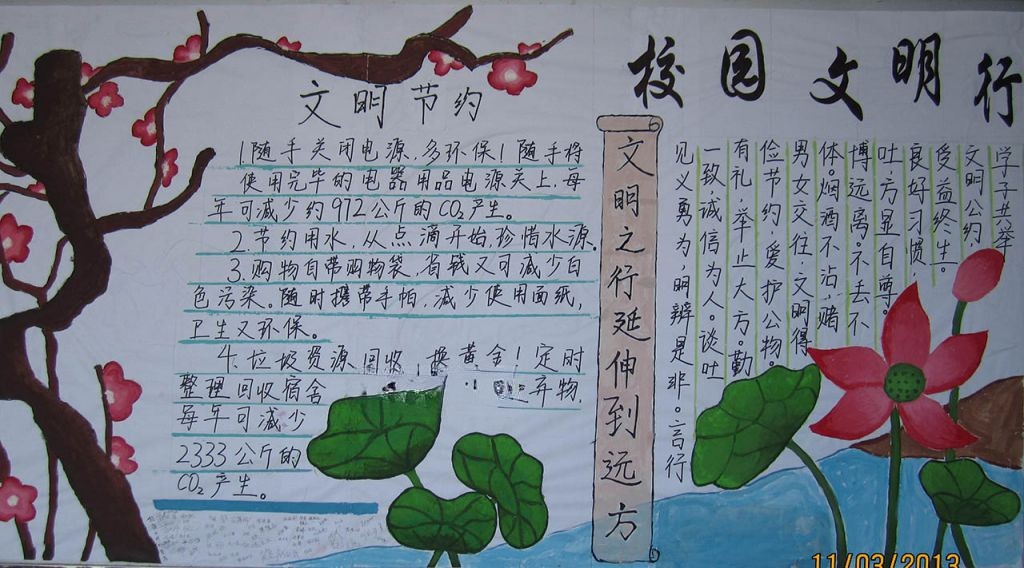 校园文明行
文明节约
1.随手关闭电源,多环保!随手将
使用完毕的电器用品电源关上,每
年可减少约972公斤的CO₂产生。
2.节约用水,从点滴开始,珍惜水源。
3.购物自带购物袋,省钱又可减少白
色污染。随时携带手帕,减少使用面纸,
卫生又环保。
4.垃圾资源回收,换黄金!定时
整理回收宿舍
弃物,
每年可减少
2333公斤的
CO₂产生。
文明之行延伸到远方
见义勇为,明辨是非。言行
一致,诚信为人。谈吐
有礼,举止大方。勤
俭节约,爱护公物。
男女交往,文明得
体。烟酒不沾,赌
博远离。不丢不
吐,方显自尊。
良好习惯,
受益终生。
文明公约
学子共举
11/03/2013